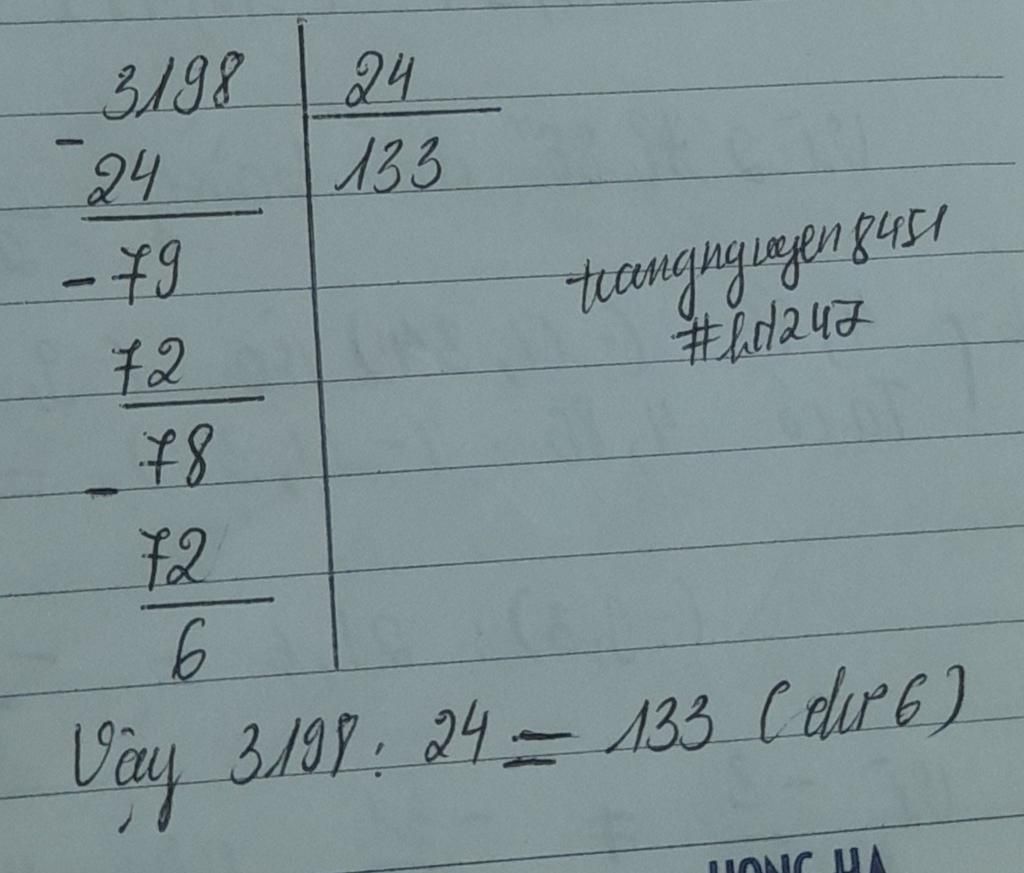 3198 24
- 24 133
- 79
72
- 78
72
6
trangnguyen8451
#hd247
Vậy 3198 : 24 = 133 (dư 6)
HONG HA